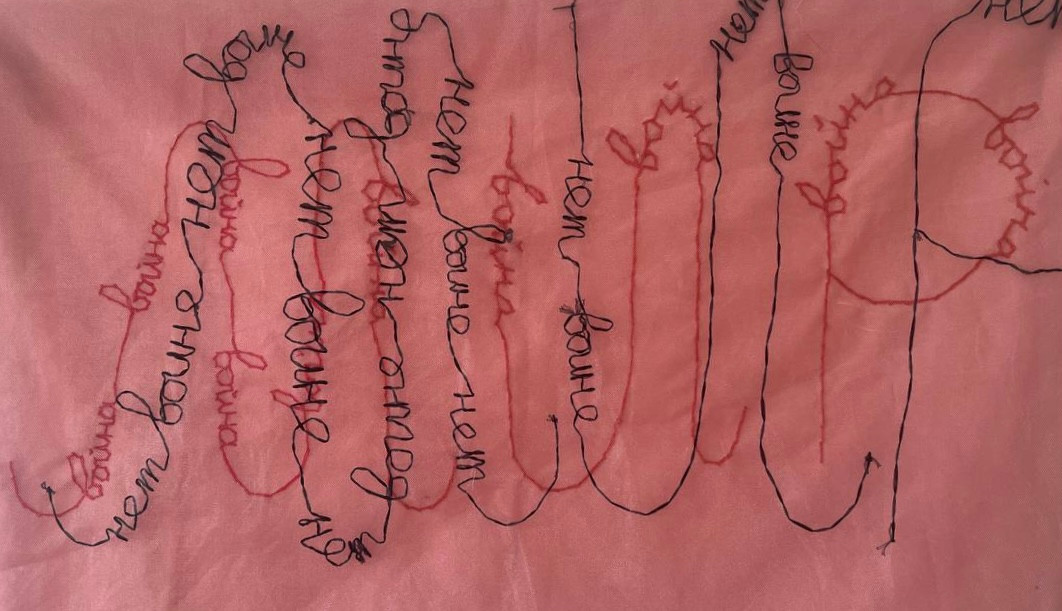 война война
нет войне нет войне
война война
нет войне
война война
войне нет войне
нет войне нет
война
нет войне
война
нет войне
война война